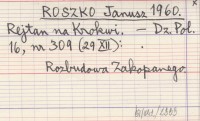 ROSZKO Janusz 1960.
Rejtan na Krokwi. — Dz. Pol.
16, nr 309 (29 XII):  .
Rozbudowa Zakopanego.